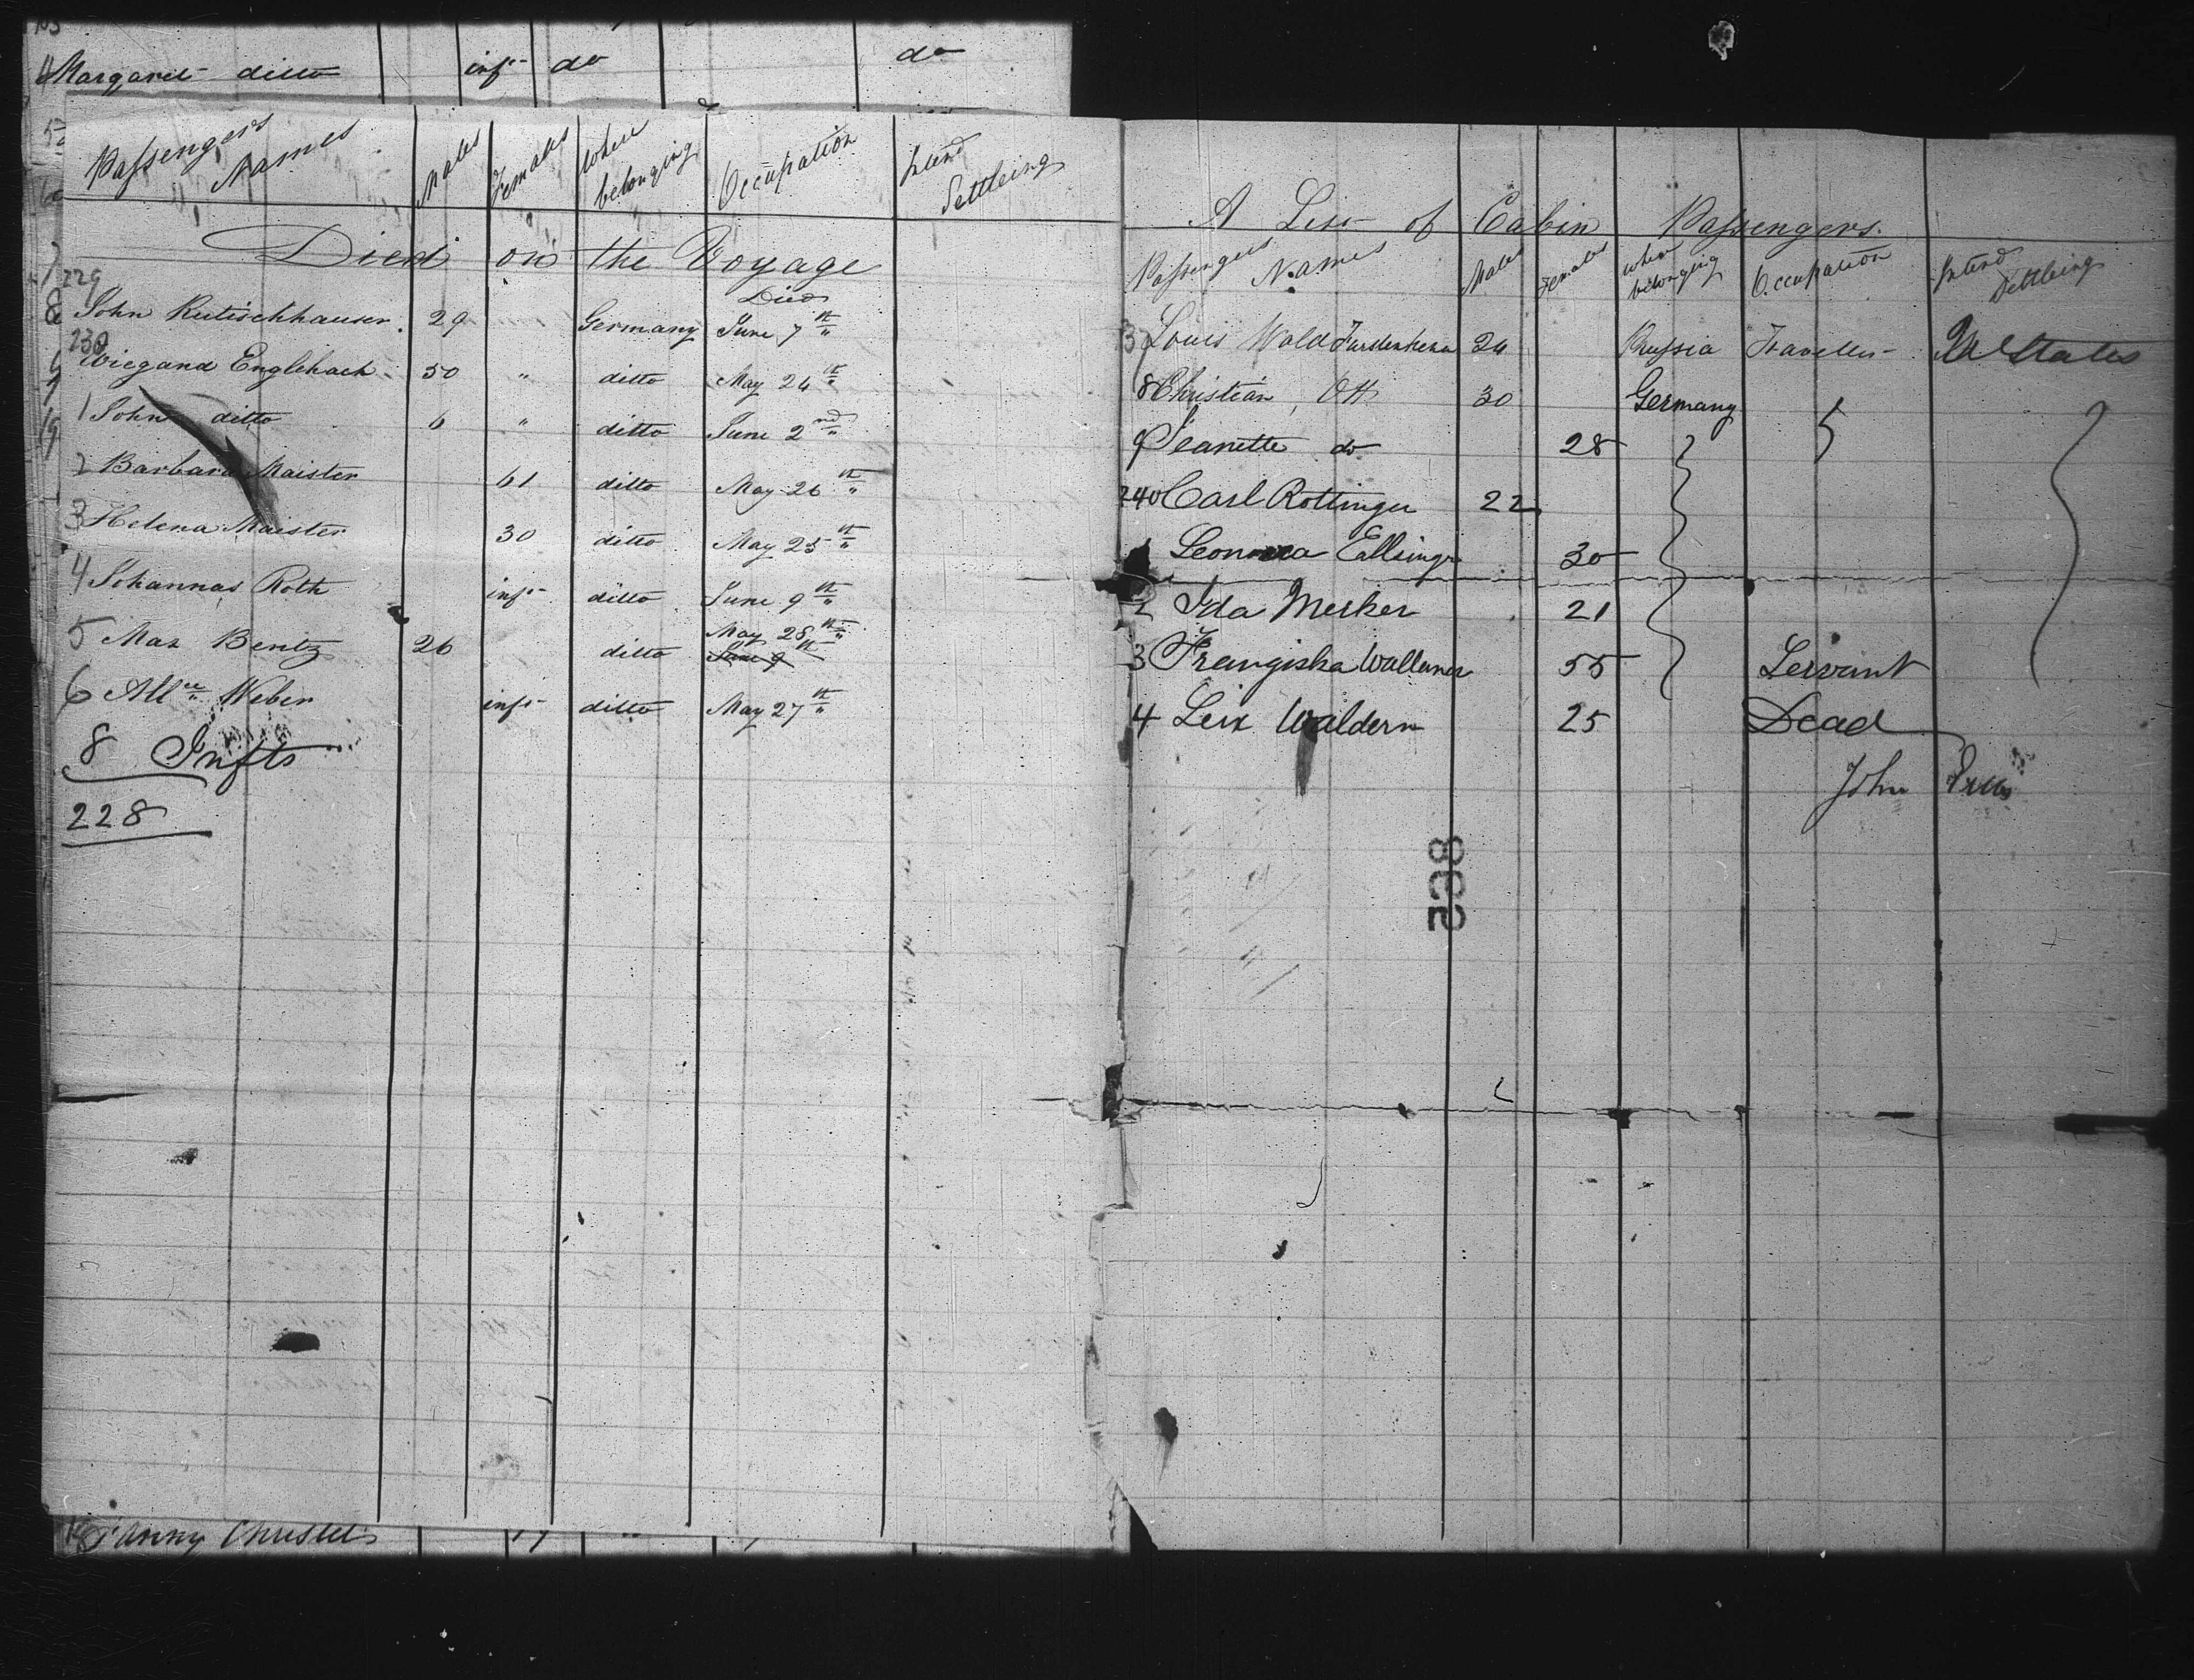 Margaret ditto inft do do
Passengers Names Males Females Where belonging Occupation Intend Settleing
Died on the Voyage
Died
229 John Rutischhauser 29 Germany June 7th
230 Wiegand Englehach 50 " ditto May 24th
1 John ditto 6 " ditto June 2nd
2 Barbara Maister 61 ditto May 26th
3 Helena Maister 30 ditto May 25th
4 Johannas Roth inft ditto June 9th
May 28th
5 Max Bentz 26 ditto June 9th
6 Weber inft ditto May 27th
8 Infts
228
Fanny
A List of Cabin Passengers.
Passengers Names Males Females when belonging Occupation Intend Settleing
37 Louis Wald 24 Prussia Traveller U States
8 Christian Ott 30 Germany
9 Jeanette do 28
240 Carl Rottinger 22
Leonora Ellinger 30
2 Ida Merker 21
3 Frangiska 55 Servant
4 Waldern 25 Dead
John
238